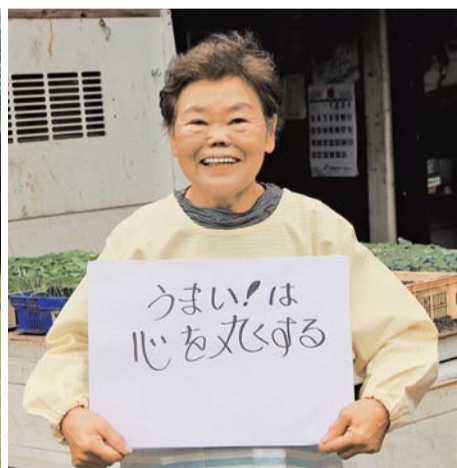 うまい!は
心を丸くする